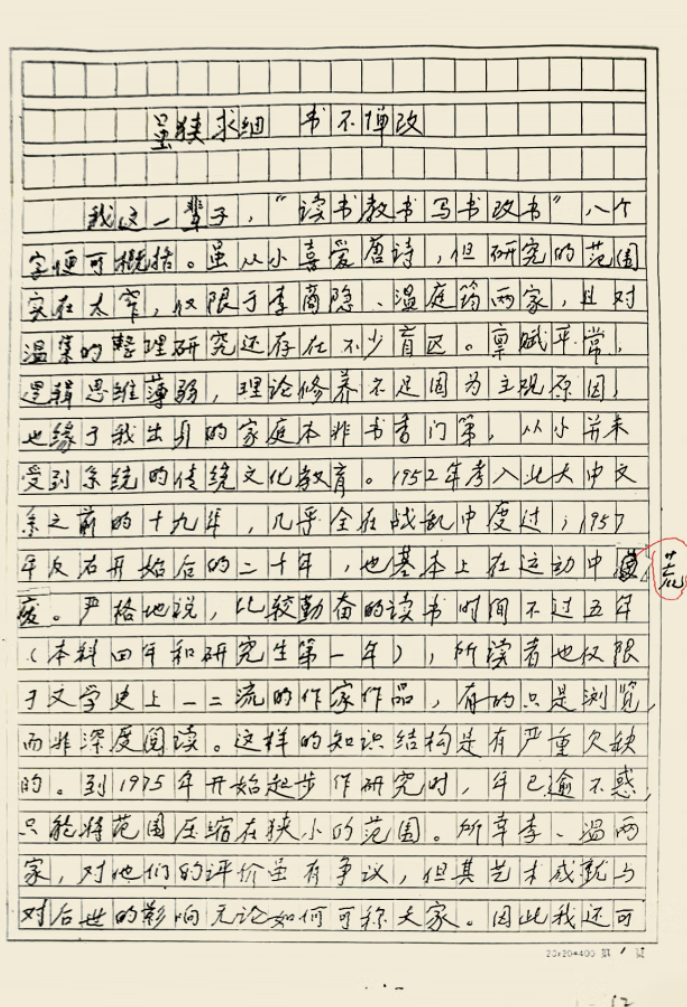 虽狭求细 书不惮改
我这一辈子，“读书教书写书改书”八个
字便可概括。虽从小喜爱唐诗，但研究的范围
实在太窄，仅限于李商隐、温庭筠两家，且对
温集的整理研究还存在不少盲区。禀赋平常，
逻辑思维薄弱，理论修养不足固为主观原因，
也缘于我出身的家庭本非书香门第，从小并未
受到系统的传统文化教育。1952年考入北大中文
系之前的十九年，几乎全在战乱中度过；1957
年反右开始后的二十年，也基本上在运动中荒
废。严格地说，比较勤奋的读书时间不过五年
（本科四年和研究生第一年），所读者也仅限
于文学史上一二流的作家作品，有的只是浏览，
而非深度阅读。这样的知识结构是有严重欠缺
的。到1975年开始起步作研究时，年已逾不惑，
只能将范围压缩在狭小的范围。所幸李、温两
家，对他们的评价虽有争议，但其艺术成就与
对后世的影响无论如何可称大家。因此我还可
20×20=400 第 1 页